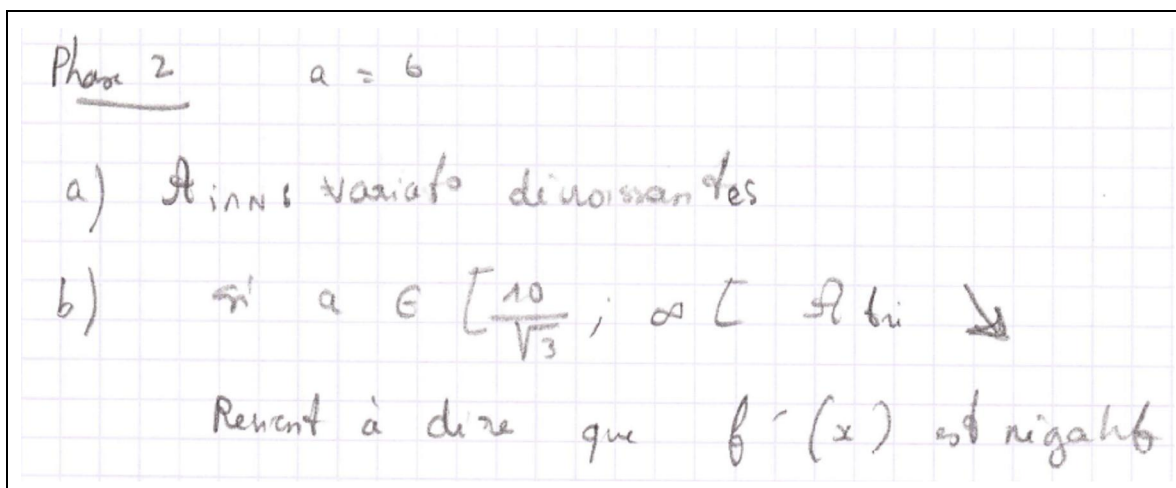 Phase 2 a = 6
a) variat° décroissantes
b) si a ∈ [10/√3 ; ∞ [ A tri ↘
Revient à dire que f'(x) est négative